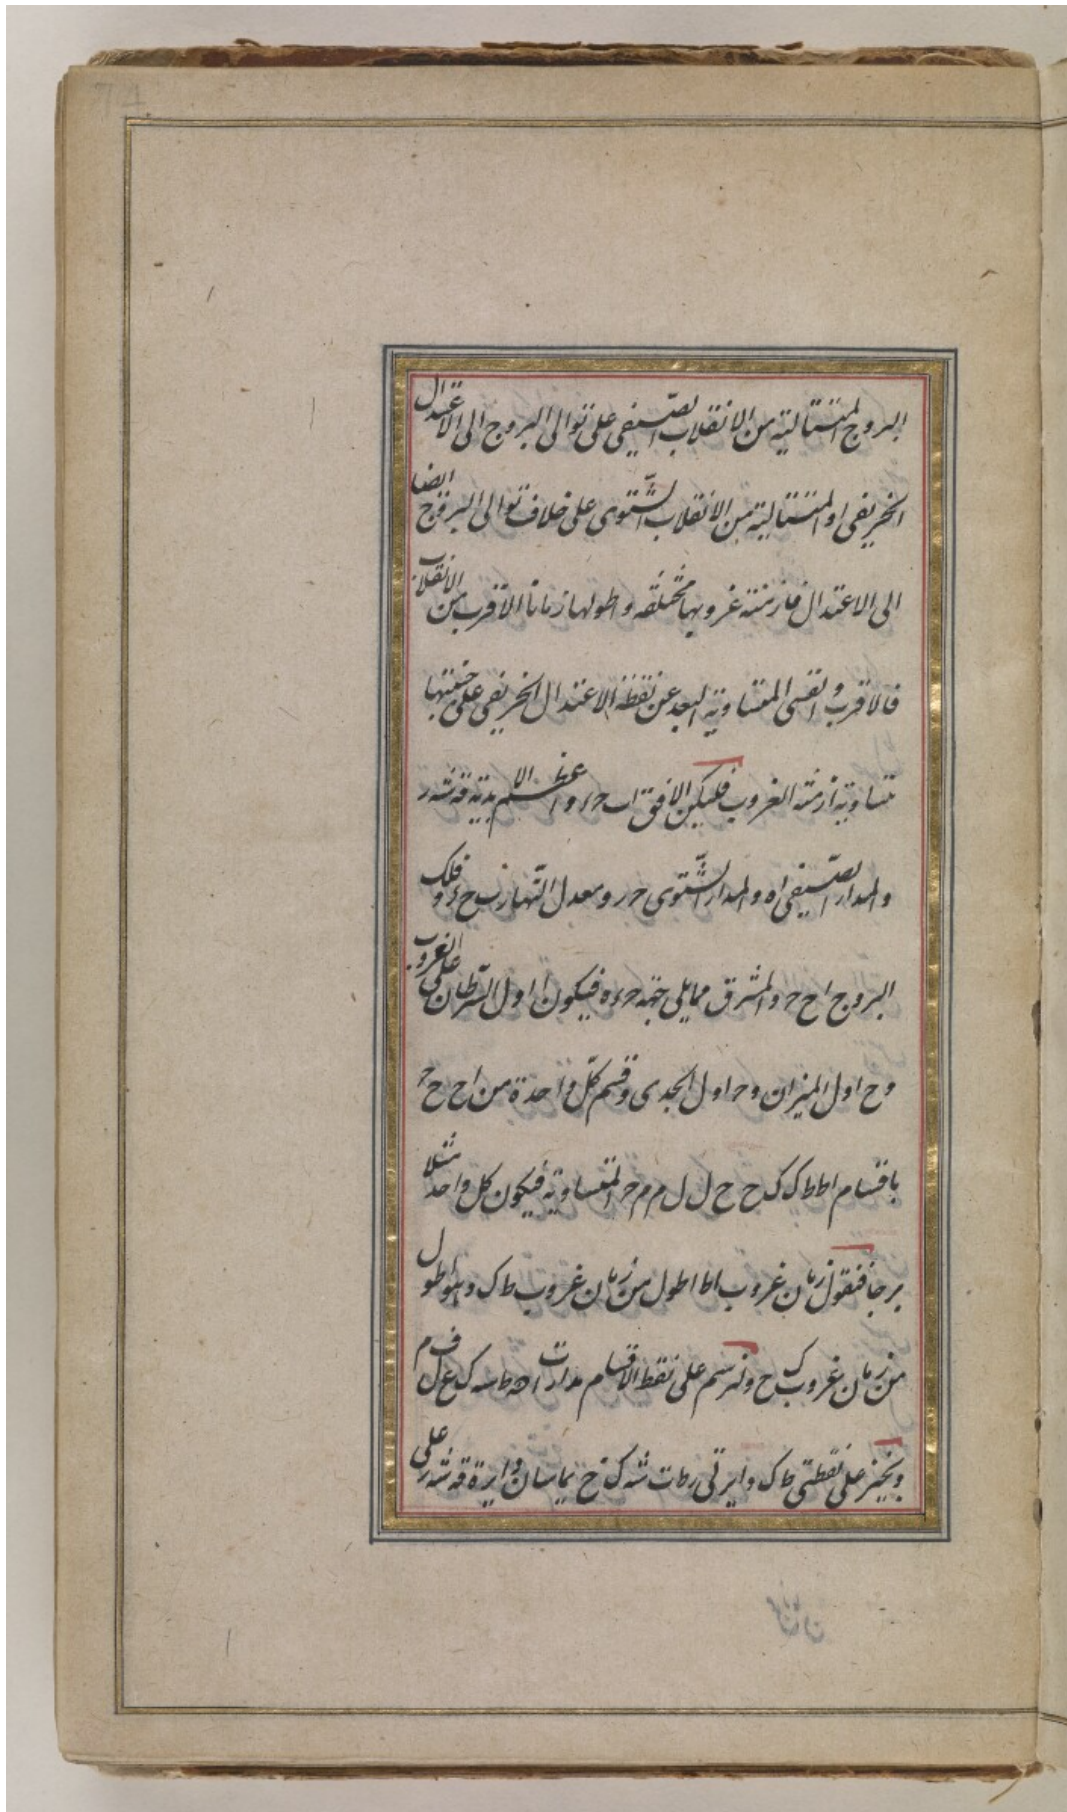 البروج المتتالية من الانقلاب الصيفي على توالي البروج الى الاعتدال
الخريفي او المتتالية من الانقلاب الشتوي على خلاف توالي البروج ايضا
الى الاعتدال فازمنة غروبها مختلفه واطولها زمانا الاقرب من الانقلاب
فالاقرب والقسي المتساوية البعد عن نقطة الاعتدال الخريفي على جنبتيها
متساوية ازمنة الغروب فليكن الافق اب حء واعظم الابدية
والمدار الصيفي اه والمدار الشتوي حر ومعدل النهار ب ح ء وفلك
البروج ا ح ح والمشرق مما يلي جهة حءه فيكون ا اول السرطان على الغروب
وح اول الميزان وح اول الجدي وقسم كل واحدة من اح ح ح
باقسام اط ط ك ك ح ح ل ل م م ح المتساوية فيكون كل واحد مثلا
برجا فنقول زمان غروب اط اطول من زمان غروب ط ك وهو اطول
من زمان غروب ك ح ونرسم على نقط الاقسام مدارات
ونجيز على نقطتي ط ك دايرتي يماسان دايرة على
74